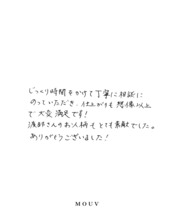 じっくり時間をかけて丁寧に相談に
のっていただき、仕上がりも想像以上
で大変満足です！
渡部さんのお人柄もとても素敵でした。
ありがとうございました！
MOUV